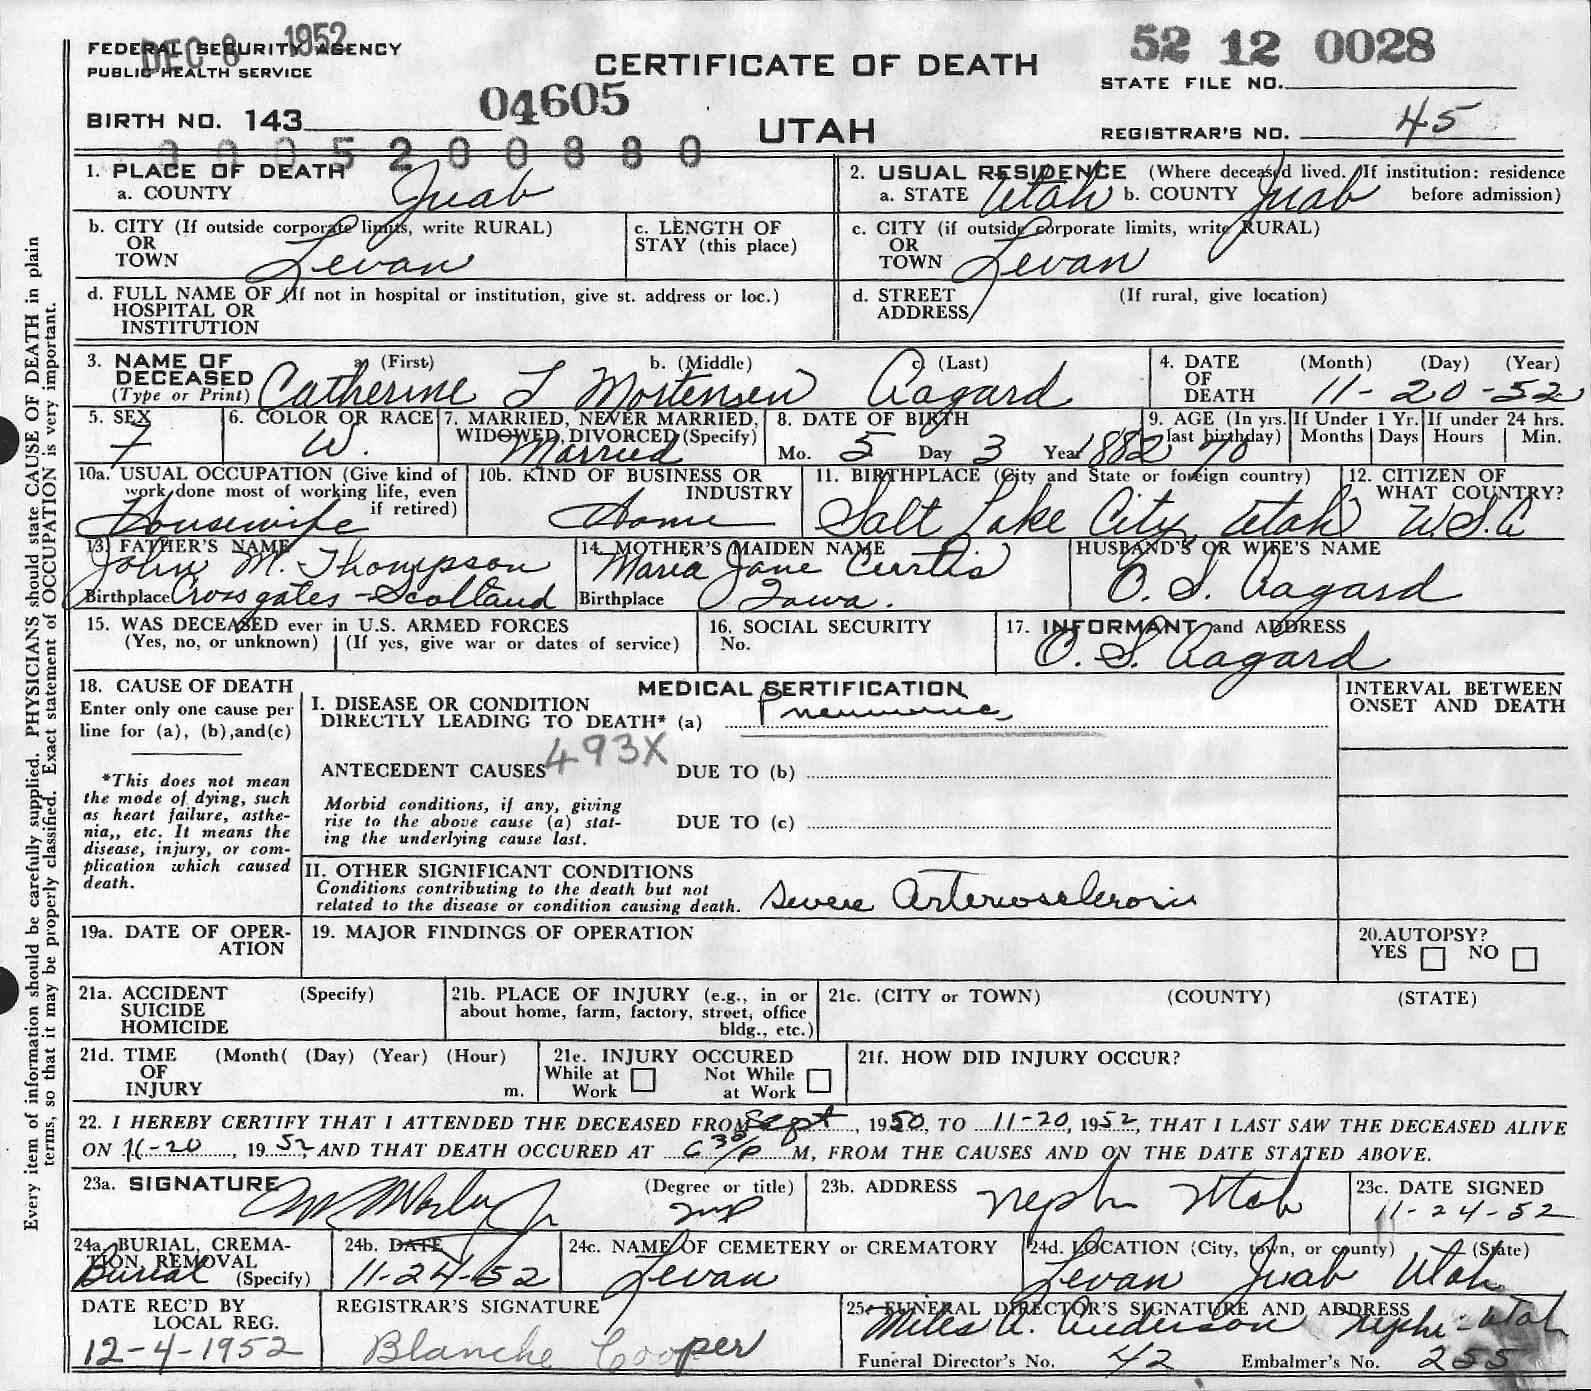 DEC 8 1952
FEDERAL SECURITY AGENCY
PUBLIC HEALTH SERVICE
CERTIFICATE OF DEATH
UTAH
52 12 0028
STATE FILE NO.
BIRTH NO. 143 04605
REGISTRAR'S NO. 45
0005200880
1. PLACE OF DEATH
a. COUNTY Juab
2. USUAL RESIDENCE (Where deceased lived. If institution: residence before admission)
a. STATE Utah b. COUNTY Juab
b. CITY (If outside corporate limits, write RURAL)
OR
TOWN Levan
c. LENGTH OF
STAY (this place)
c. CITY (if outside corporate limits, write RURAL)
OR
TOWN Levan
d. FULL NAME OF (If not in hospital or institution, give st. address or loc.)
HOSPITAL OR
INSTITUTION
d. STREET (If rural, give location)
ADDRESS
3. NAME OF DECEASED
(Type or Print)
a. (First) b. (Middle) c. (Last)
Catherine T Mortensen Aagard
4. DATE OF DEATH (Month) (Day) (Year)
11-20-52
5. SEX
F
6. COLOR OR RACE
W.
7. MARRIED, NEVER MARRIED,
WIDOWED, DIVORCED (Specify)
Married
8. DATE OF BIRTH
Mo. 5 Day 3 Year 1882
9. AGE (In yrs. last birthday)
70
If Under 1 Yr.
Months Days
If under 24 hrs.
Hours Min.
10a. USUAL OCCUPATION (Give kind of
work done most of working life, even
if retired)
Housewife
10b. KIND OF BUSINESS OR
INDUSTRY
Home
11. BIRTHPLACE (City and State or foreign country)
Salt Lake City, Utah
12. CITIZEN OF
WHAT COUNTRY?
U.S.A
13. FATHER'S NAME
John M. Thompson
Birthplace Crossgates - Scotland
14. MOTHER'S MAIDEN NAME
Maria Jane Curtis
Birthplace Iowa.
HUSBAND'S OR WIFE'S NAME
O. S. Aagard
15. WAS DECEASED ever in U.S. ARMED FORCES
(Yes, no, or unknown) (If yes, give war or dates of service)
16. SOCIAL SECURITY
No.
17. INFORMANT and ADDRESS
O. S. Aagard
18. CAUSE OF DEATH
Enter only one cause per
line for (a), (b), and(c)
*This does not mean
the mode of dying, such
as heart failure, asthe-
nia,, etc. It means the
disease, injury, or com-
plication which caused
death.
MEDICAL SERTIFICATION
I. DISEASE OR CONDITION
DIRECTLY LEADING TO DEATH* (a) Pneumonia
493X
ANTECEDENT CAUSES DUE TO (b)
Morbid conditions, if any, giving
rise to the above cause (a) stat-
ing the underlying cause last.
DUE TO (c)
INTERVAL BETWEEN
ONSET AND DEATH
II. OTHER SIGNIFICANT CONDITIONS
Conditions contributing to the death but not
related to the disease or condition causing death. Severe Arteriosclerosis
19a. DATE OF OPER-
ATION
19. MAJOR FINDINGS OF OPERATION
20.AUTOPSY?
YES NO
21a. ACCIDENT (Specify)
SUICIDE
HOMICIDE
21b. PLACE OF INJURY (e.g., in or
about home, farm, factory, street, office
bldg., etc.)
21c. (CITY or TOWN) (COUNTY) (STATE)
21d. TIME (Month( (Day) (Year) (Hour)
OF
INJURY m.
21e. INJURY OCCURED
While at Work Not While at Work
21f. HOW DID INJURY OCCUR?
22. I HEREBY CERTIFY THAT I ATTENDED THE DECEASED FROM Sept, 1950, TO 11-20, 1952, THAT I LAST SAW THE DECEASED ALIVE
ON 11-20, 1952, AND THAT DEATH OCCURED AT 6 30/P M, FROM THE CAUSES AND ON THE DATE STATED ABOVE.
23a. SIGNATURE (Degree or title)
MD
23b. ADDRESS Nephi Utah
23c. DATE SIGNED
11-24-52
24a. BURIAL, CREMA-
TION, REMOVAL
(Specify)
Burial
24b. DATE
11-24-52
24c. NAME OF CEMETERY or CREMATORY
Levan
24d. LOCATION (City, town, or county) (State)
Levan Juab Utah
DATE REC'D BY
LOCAL REG.
12-4-1952
REGISTRAR'S SIGNATURE
Blanche Cooper
25. FUNERAL DIRECTOR'S SIGNATURE AND ADDRESS
Miles A. Anderson Nephi - Utah
Funeral Director's No. 42 Embalmer's No. 255
Every item of information should be carefully supplied. PHYSICIANS should state CAUSE OF DEATH in plain
terms, so that it may be properly classified. Exact statement of OCCUPATION is very important.